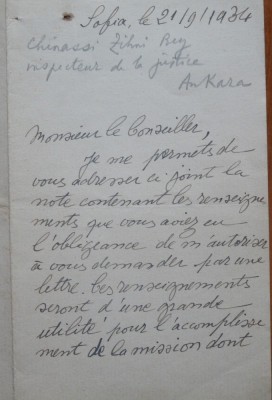 Sofia, le 21/9/1934
Chinassi Zihni Bey
inspecteur de la justice
Ankara
Monsieur le Conseiller,
Je me permets de
vous adresser ci-joint la
note contenant les renseigne
ments que vous aviez eu
l'obligeance de m'autoriser
à vous demander par une
lettre. Ces renseignements
seront d'une grande
utilité pour l'accomplisse
ment de la mission dont